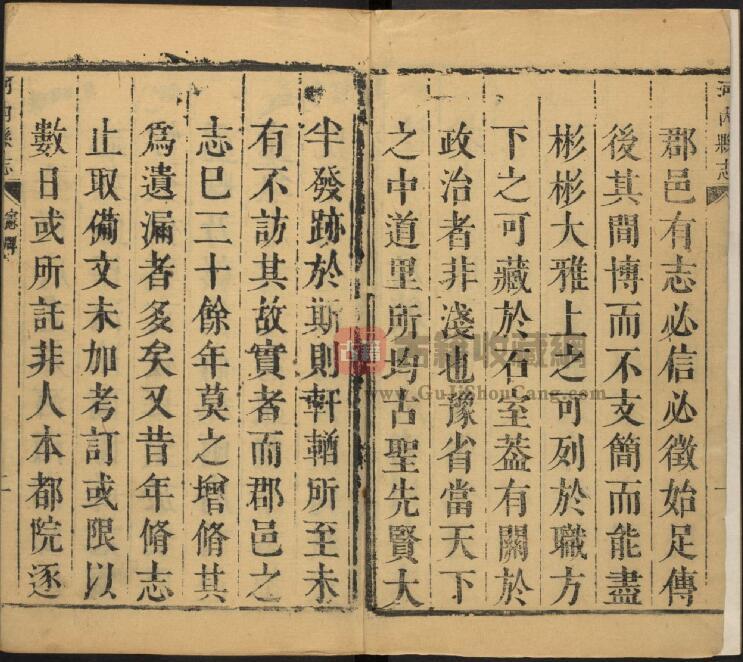 河內縣志
郡邑有志必信必徵始足傳
後其間博而不支簡而能盡
彬彬大雅上之可列於職方
下之可藏於石室葢有關於
政治者非淺也豫省當天下
之中道里所均古聖先賢大
半發跡於斯則軒輶所至未
有不訪其故實者而郡邑之
志巳三十餘年莫之增脩其
爲遺漏者多矣又昔年脩志
止取備文未加考訂或限以
數日或所託非人本都院逐
河內縣志
一
古籍
古籍收藏網
www.GuJiShouCang.com